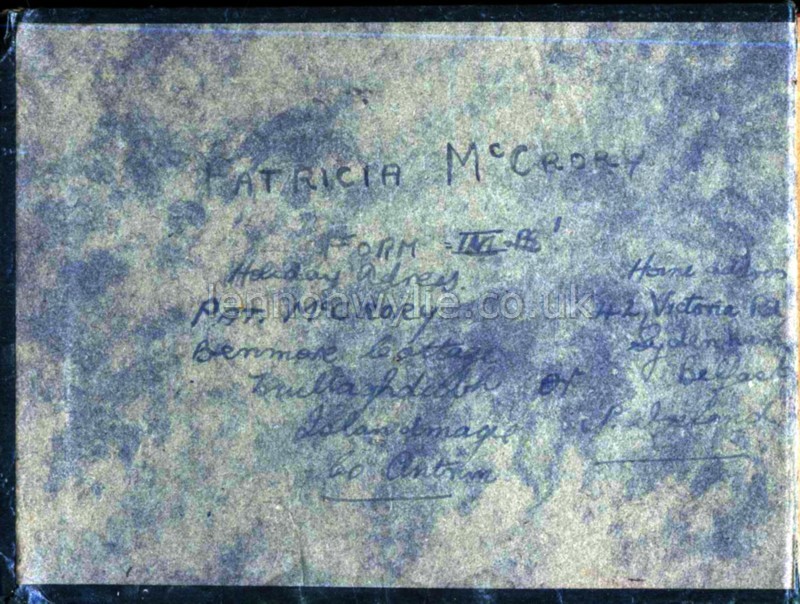 PATRICIA McCRORY
FORM
Holiday Adress.
PAT. McCRORY
Benmore Cottage
Islandmagee
Co Antrim
or
Home address
42, Victoria Rd
Sydenham
Belfast
N. Ireland
jennyawylie.co.uk